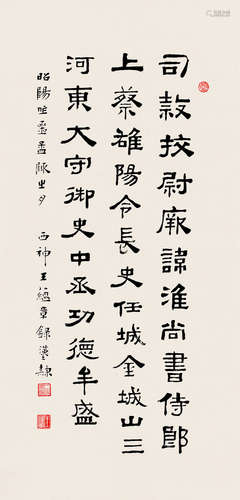 司敎校尉厥諱淮尚書侍郎
上蔡雄陽令長史任城金城山三
河東大守御史中丞功德牟盛
昭陽孟陬之夕 西神王蘊章錄漢隸